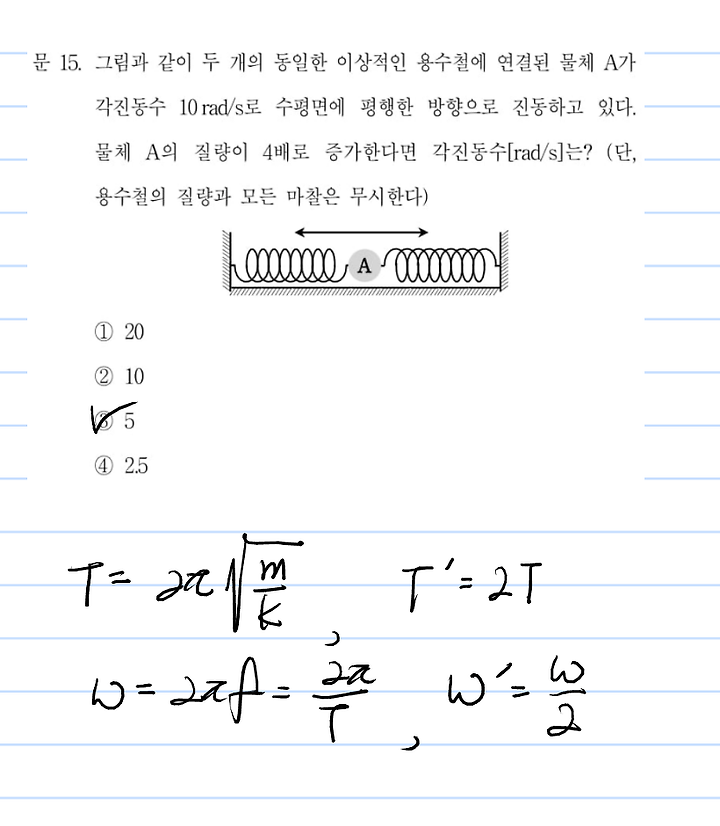 문 15. 그림과 같이 두 개의 동일한 이상적인 용수철에 연결된 물체 A가
각진동수 10 rad/s로 수평면에 평행한 방향으로 진동하고 있다.
물체 A의 질량이 4배로 증가한다면 각진동수[rad/s]는? (단,
용수철의 질량과 모든 마찰은 무시한다)
A
① 20
② 10
③ 5
④ 2.5
T = 2π√(m/k) , T′ = 2T
ω = 2πf = 2π/T , ω′ = ω/2